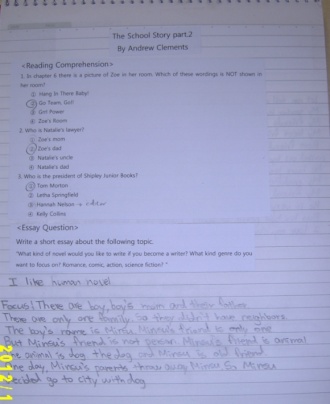 The School Story part.2
By Andrew Clements
<Reading Comprehension>
1. In chapter 6 there is a picture of Zoe in her room. Which of these wordings is NOT shown in
her room?
① Hang In There Baby!
② Go Team, Go!!
③ Girl Power
④ Zoe's Room
2. Who is Natalie's lawyer?
① Zoe's mom
② Zoe's dad
③ Natalie's uncle
④ Natalie's dad
3. Who is the president of Shipley Junior Books?
① Tom Morton
② Letha Springfield
③ Hannah Nelson
④ Kelly Collins
<Essay Question>
Write a short essay about the following topic.
"What kind of novel would you like to write if you become a writer? What kind genre do you
want to focus on? Romance, comic, action, science fiction? "
I like human novel
Focus! There are boy, boy's mom and their father
There are only one family. So they didn't have neighbors
The boy's name is Minsu. Minsu's friend is only one
But Minsu's friend is not person. Minsu's friend is animal
animal is dog the dog and Minsu is old friend
day, Minsu's parents throw away Minsu So Minsu
go to city with dog
2012/1